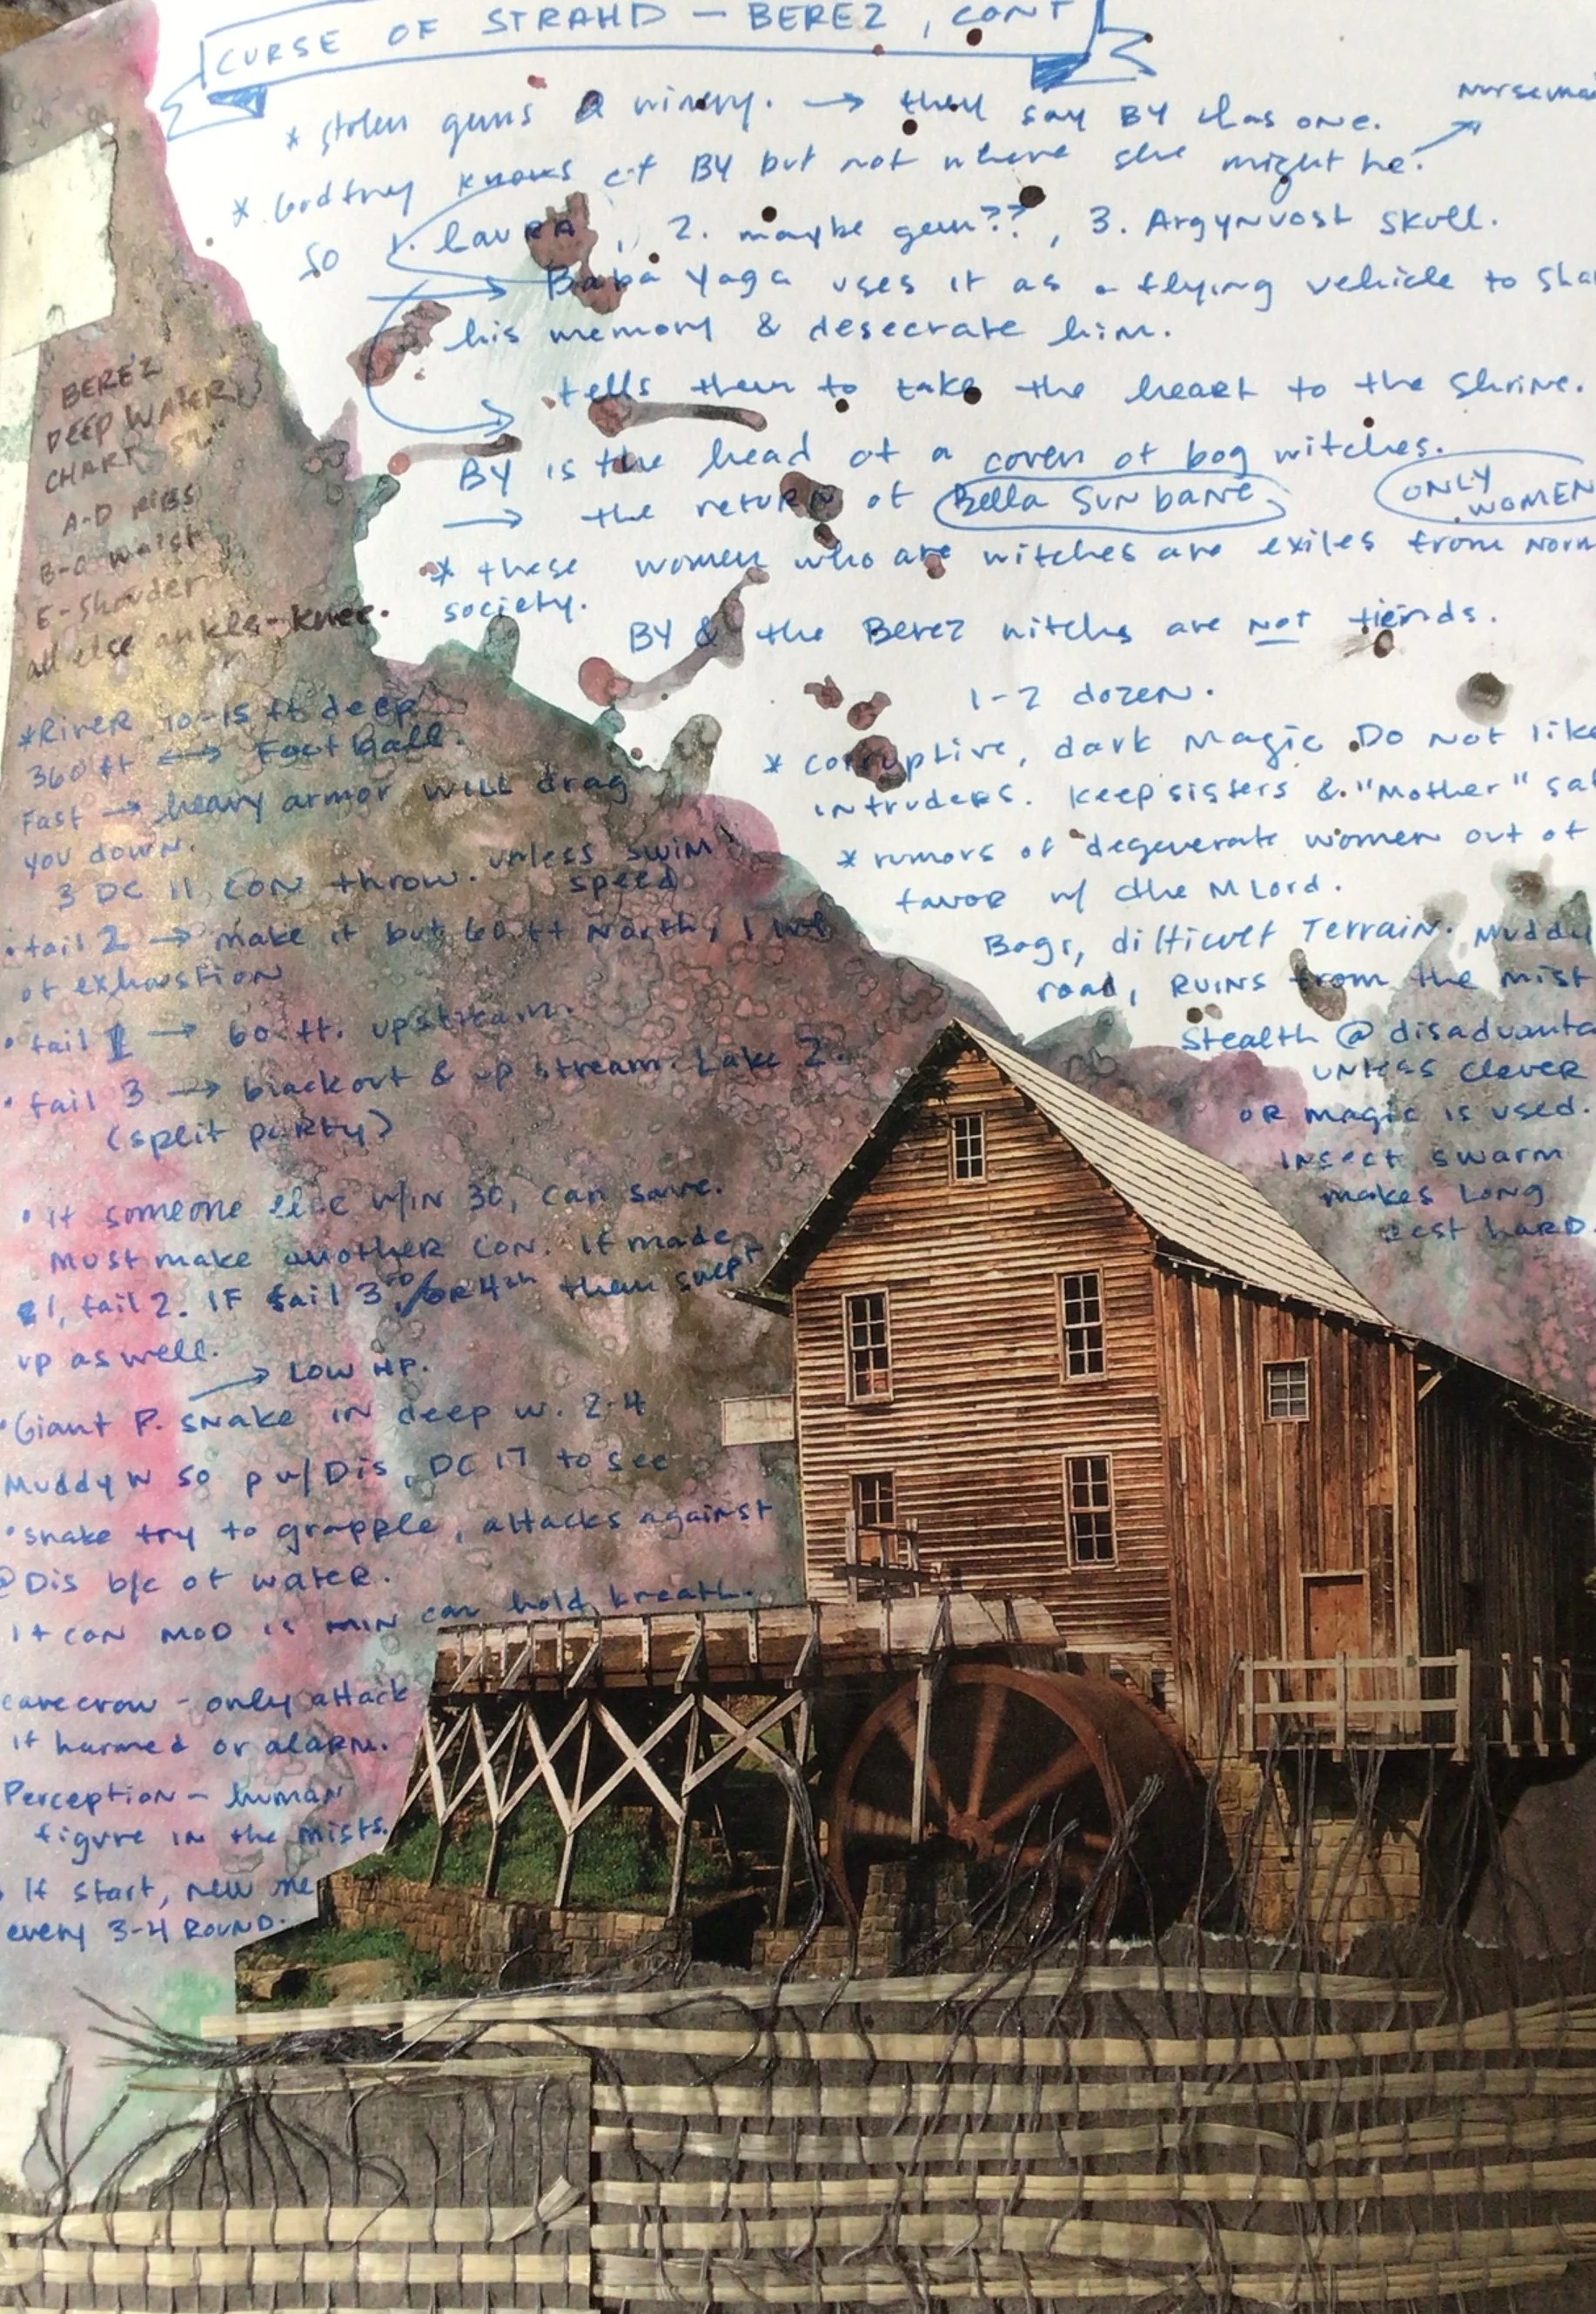 CURSE OF STRAHD — BEREZ, CONT
* stolen gems @ winery. → they say BY has one.
* Godfrey knows of BY but not where she might be. ↗
So 1. Laura, 2. maybe gem??, 3. Argynvost skull.
→ Baba Yaga uses it as a flying vehicle to
his memory & desecrate him.
→ tells them to take the heart to the shrine.
BY is the head of a coven of bog witches.
→ the return of Bella Sunbane
ONLY
WOMEN
* these women who are witches are exiles from
society.
BY & the Berez witches are NOT fiends.
1-2 dozen.
* corruptive, dark magic. Do not like
intruders. Keep sisters & "Mother"
* rumors of degenerate women out of
favor w/ the MLord.
Bogs, difficult Terrain. Muddy
road, RUINS from the mist
Stealth @
unless clever
or magic is used.
Insect swarm
makes long
rest hard.
BEREZ
DEEP WATER
CHART
A-D RIBS
B-a waist
E-Shouder
all else ankls-knee.
*River 10-15 ft deep
360 ft ↔ Football.
Fast → heavy armor WILL drag
you down.
3 DC 11 CON throw. unless swim
speed
• fail 2 → make it but 60 ft North, 1 lvl
of exhaustion
• fail 1 → 60 ft. upstream.
• fail 3 → blackout & up stream. Lake Z.
(split party)
• If someone else w/in 30, can save.
Must make another CON. If made
1, fail 2. IF fail 3rd/or 4th then swept
up as well.
→ LOW HP.
• Giant P. snake in deep w. 2-4
Muddy W so p w/Dis, DC 17 to see
• snake try to grapple, attacks against
@Dis b/c of water.
If CON MOD is MIN can hold breath.
carecrow - only attack
if harmed or alarm.
Perception - human
figure in the mists.
If start, new one
every 3-4 ROUND.